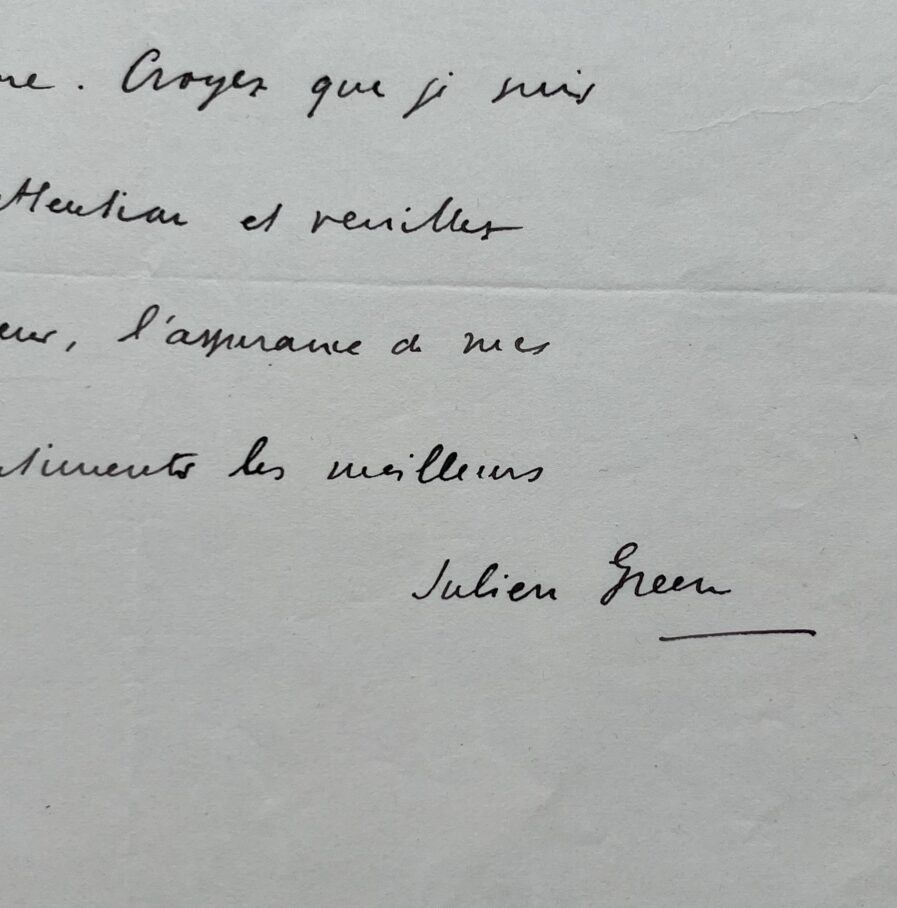 ne. Croyez que je suis
ttention et veuillez
eur, l'assurance de mes
timents les meilleurs
Julien Green